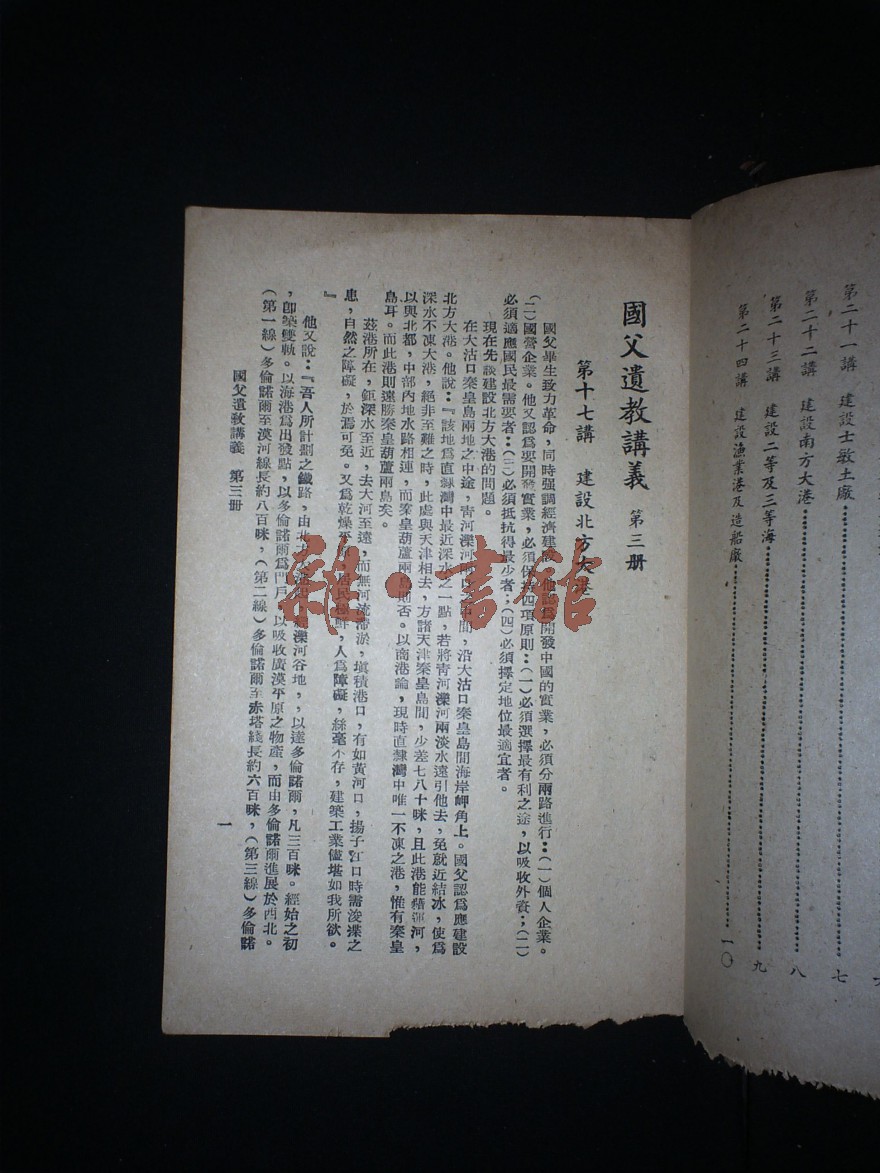 第二十一講　建設士敏土廠⋯⋯七
第二十二講　建設南方大港⋯⋯八
第二十三講　建設二等及三等海⋯⋯九
第二十四講　建設漁業港及造船廠⋯⋯一〇
國父遺教講義　第三册
第十七講　建設北方大港
國父畢生致力革命，同時强調經濟建設，他認爲開發中國的實業，必須分兩路進行：（一）個人企業。
（二）國營企業。他又認爲要開發實業，必須保持四項原則：（一）必須選擇最有利之途，以吸收外資；（二）
必須適應國民最需要者；（三）必須抵抗得最少者；（四）必須擇定地位最適宜者。
現在先談建設北方大港的問題。
在大沽口秦皇島兩地之中途，靑河灤河兩口之間，沿大沽口秦皇島間海岸岬角上。國父認爲應建設
北方大港。他說：『該地爲直隸灣中最近深水之一點，若將靑河灤河兩淡水遠引他去，免就近結冰，使爲
深水不凍大港，絕非至難之時，此處與天津相去，方諸天津秦皇島間，少差七八十咪，且此港能藉運河，
以與北都，中部內地水路相連，而秦皇葫蘆兩島則否。以商港論，現時直隸灣中唯一不凍之港，惟有秦皇
島耳。而此港則遠勝秦皇葫蘆兩島矣。
茲港所在，鉅深水至近，去大河至遠，而無河流滯淤，塡積港口，有如黃河口，揚子江口時需浚渫之
患，自然之障礙，於焉可免。又爲乾燥平原，居民極鮮，人爲障礙，絲毫不存，建築工業儘堪如我所欲。
』
他又說：『吾人所計劃之鐵路，由北方大港起，經灤河谷地，，以達多倫諾爾，凡三百咪。經始之初
，卽築雙軌。以海港爲出發點，以多倫諾爾爲門戶，以吸收廣漠平原之物產，而由多倫諾爾進展於西北。
（第一線）多倫諾爾至漠河線長約八百咪，（第二線）多倫諾爾至赤塔綫長約六百咪，（第三線）多倫諾
國父遺教講義　第三册
一
雜·書館